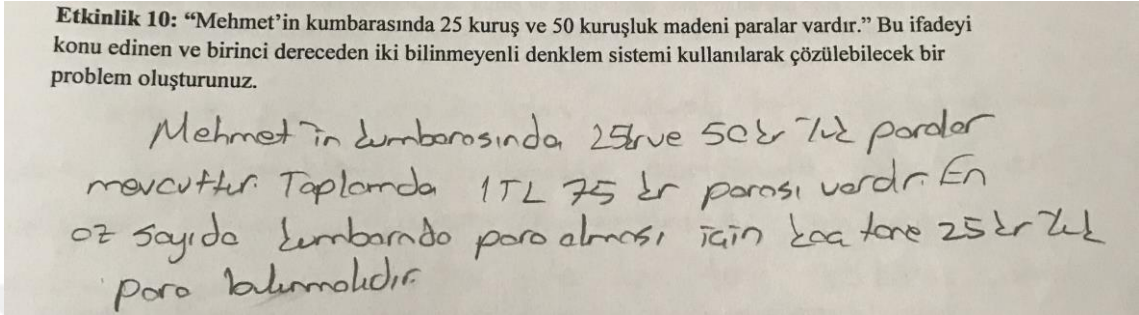 Etkinlik 10: “Mehmet’in kumbarasında 25 kuruş ve 50 kuruşluk madeni paralar vardır.” Bu ifadeyi
konu edinen ve birinci dereceden iki bilinmeyenli denklem sistemi kullanılarak çözülebilecek bir
problem oluşturunuz.
Mehmet'in kumbarasında 25kr ve 50 kr 'luk paralar
mevcuttur. Toplamda 1TL 75 kr parası vardır. En
az sayıda kumbarada para olması için kaç tane 25 kr'luk
para bulunmalıdır.